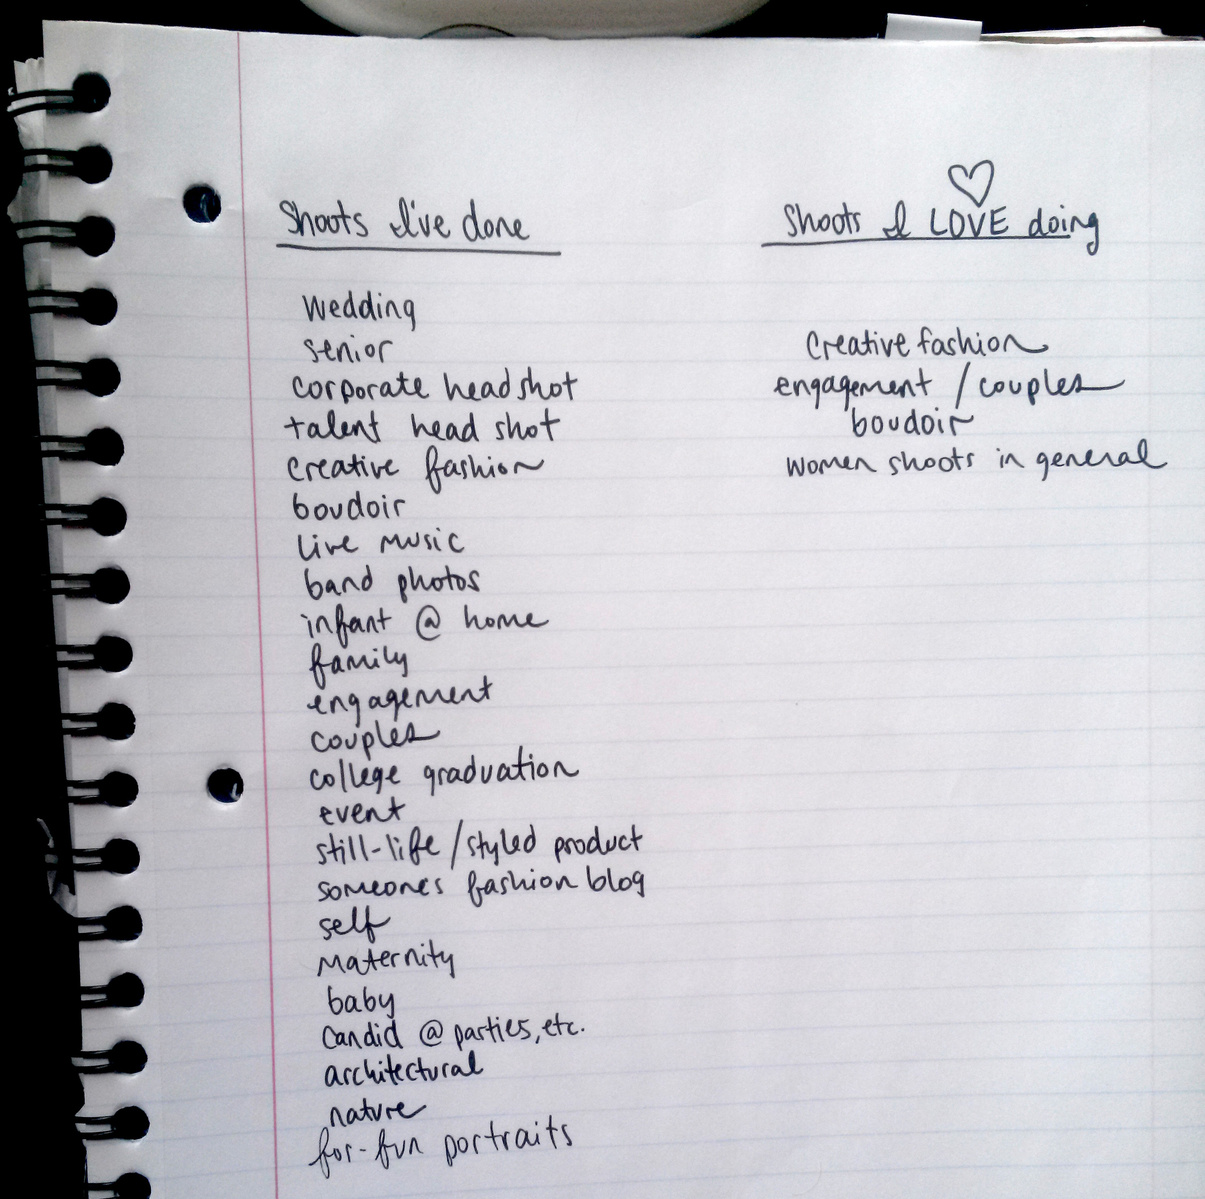 Shoots I've done
wedding
senior
corporate headshot
talent head shot
creative fashion
boudoir
live music
band photos
infant @ home
family
engagement
couples
college graduation
event
still-life/styled product
someone's fashion blog
self
maternity
baby
candid @ parties, etc.
architectural
nature
for-fun portraits
Shoots I LOVE doing
creative fashion
engagement / couples
boudoir
women shoots in general